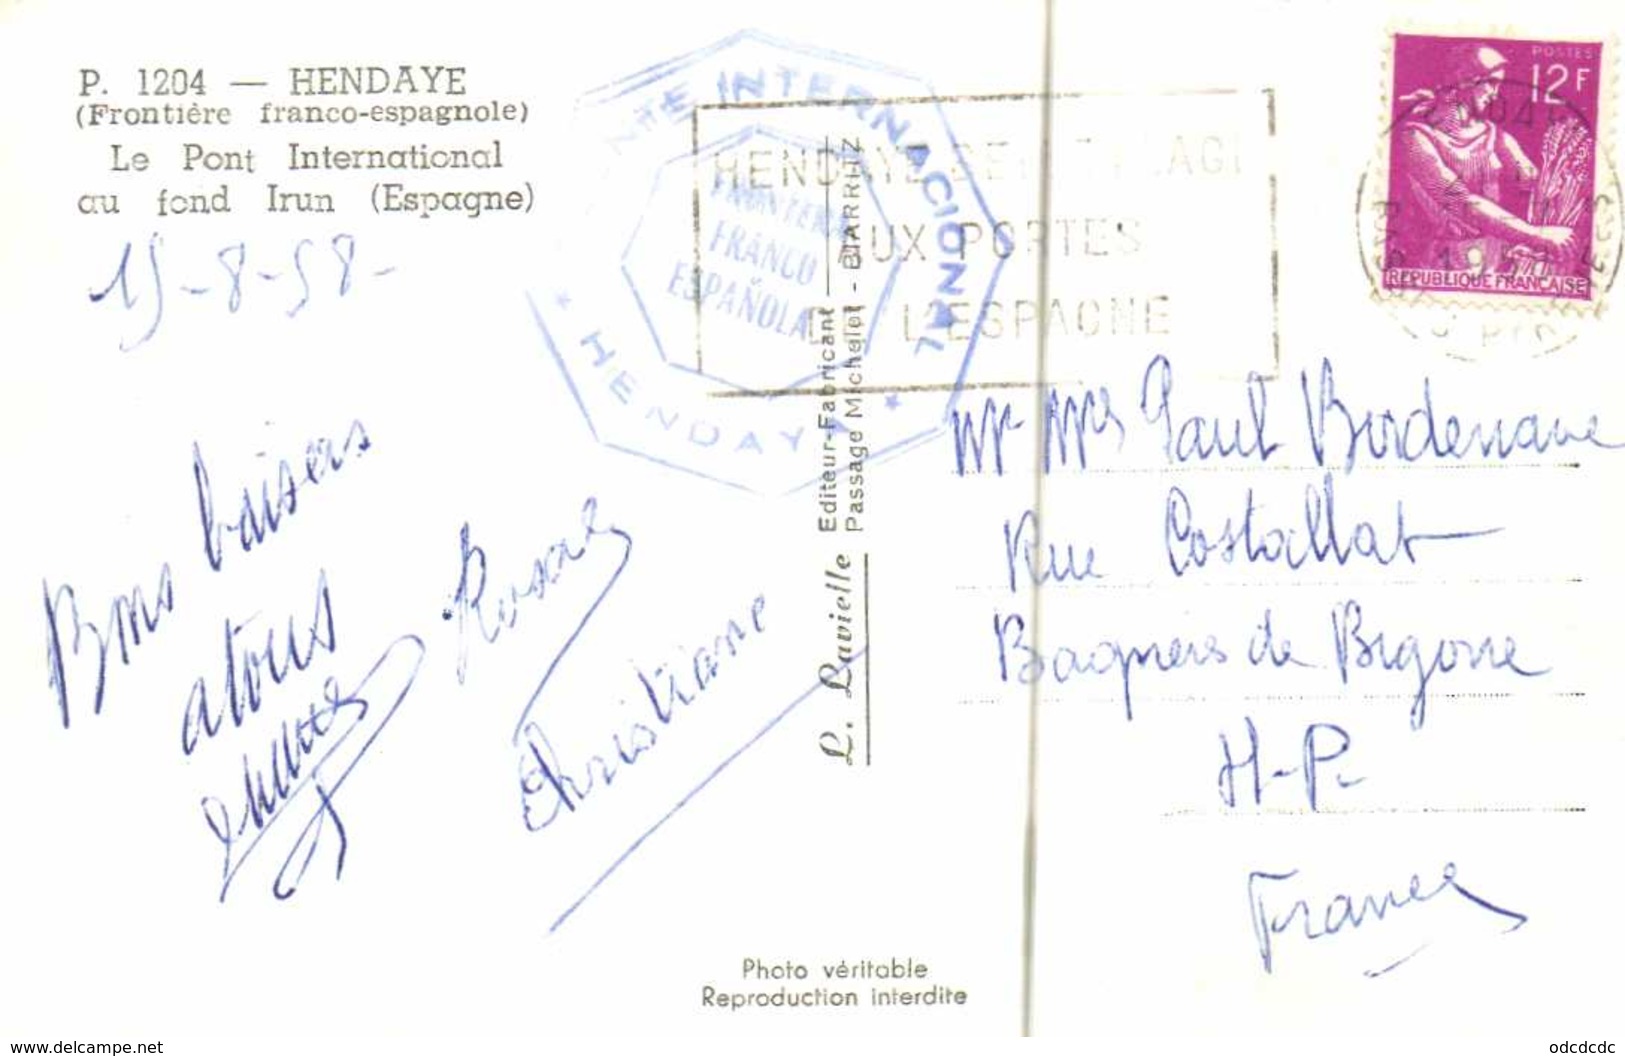 P. 1204 — HENDAYE
(Frontière franco-espagnole)
Le Pont International
au fond Irun (Espagne)
15-8-58-
Bons baisers
a tous
Christiane
L. Lavielle
Editeur-Fabricant
Passage Michelet - BIARRITZ
INTERNACIONAL
FRONTERA
FRANCO
ESPAÑOLA
HENDAYE
HENDAYE
AUX PORTES
DE L'ESPAGNE
POSTES
12F
REPUBLIQUE FRANÇAISE
Mr Mme Paul Bordenave
Rue Costallat
Bagneres de Bigorre
H-P-
France
Photo véritable
Reproduction interdite
www.delcampe.net
odcdcdc